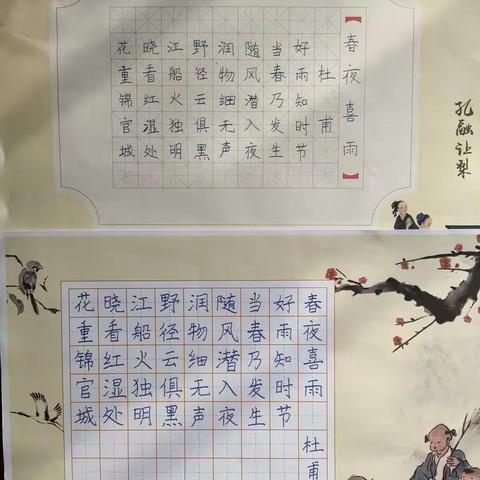 孔融让梨
【春夜喜雨】
杜甫
好雨知时节
当春乃发生
随风潜入夜
润物细无声
野径云俱黑
江船火独明
晓看红湿处
花重锦官城
春夜喜雨
杜甫
好雨知时节
当春乃发生
随风潜入夜
润物细无声
野径云俱黑
江船火独明
晓看红湿处
花重锦官城